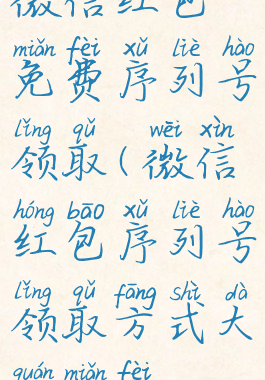 微信红包
miǎn fèi xǔ liè hào
免费序列号
lǐng qǔ wēi xìn
领取(微信
hóng bāo xǔ liè hào
红包序列号
lǐng qǔ fāng shì dà
领取方式大
quán miǎn fèi